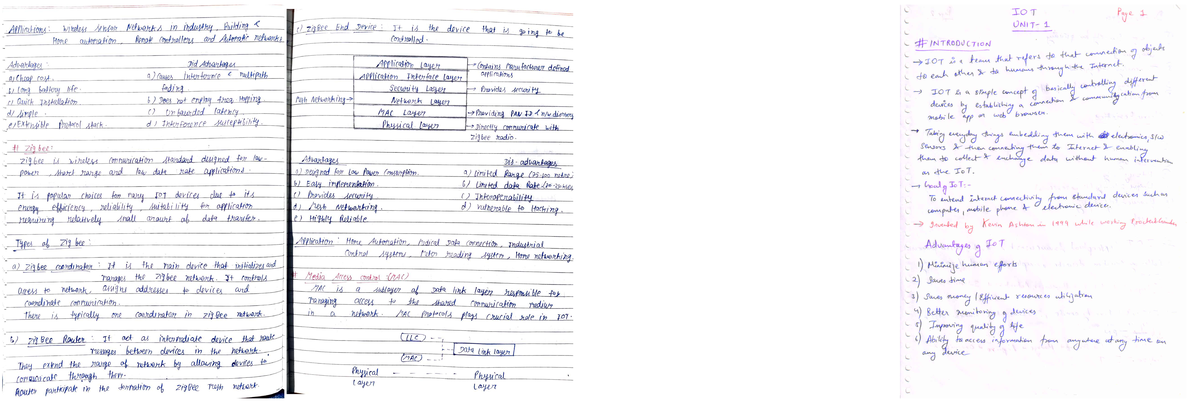 Applications: Wireless Sensor Networks in industry, Building &
Home automation, Remote controllers and Automatic networks.
Advantages: Dis Advantages.
a) Cheap cost. a) Causes Interference & multipath
b) Long battery life. fading
c) Quick Installation. b) Does not employ freq Hopping
d) Simple. c) Unbounded latency.
e) Extensible Protocol stack. d) Interference susceptibility.
# Zigbee:
Zigbee is wireless communication standard designed for low-
power, short range and low data rate applications.
It is popular choice for many IOT devices due to its
energy efficiency, reliability, suitability for application
requiring relatively small amount of data transfer.
Types of Zigbee:
a) Zigbee coordinator: It is the main device that initializes and
manages the Zigbee network. It controls
access to network, assigns addresses to devices and
coordinate communication.
There is typically one coordinator in zigbee network.
b) ZigBee Router: It act as intermediate device that route
messages between devices in the network.
They extend the range of network by allowing devices to
communicate through them.
Router participate in the formation of ZigBee mesh network
c) ZigBee End Device: It is the device that is going to be
controlled.
Application Layer → Contains Manufacturer defined
applications
Application Interface Layer
Security Layer → Provides security.
Mesh Networking → Network Layer
MAC Layer → Providing PAN ID & n/w discovery
Physical Layer → Directly communicate with
Zigbee radio.
Advantages Dis-advantages
a) Designed for Low Power Consumption. a) Limited Range
b) Easy implementation. b) Limited data Rate
c) Provides security c) Interoperability
d) Mesh Networking. d) Vulnerable to
e) Highly Reliable
Application: Home Automation, Medical Data connection, Industrial
Control system, Meter reading system, Home networking.
# Media Access control (MAC)
MAC is a sublayer of Data link layer responsible for
managing access to the shared communication medium
in a network. MAC protocols plays crucial role in IOT.
(LLC)
Data Link layer
(MAC)
Physical - - - - - Physical
Layer Layer
IOT Page 1
UNIT-1
# INTRODUCTION
→ IOT is a term that refers to that connection of objects
to each other & to humans through the Internet.
→ IOT is a simple concept of basically controlling different
devices by establishing a connection & communication from
mobile app or web browser.
→ Taking everyday things embedding them with electronics, S/W
sensors & then connecting them to Internet & enabling
them to collect & exchange data without human intervention
as the IOT.
→ Goal of IOT:-
To extend internet connectivity from standard devices such as
computer, mobile phone & electronic devices.
→ Invented by Kevin Ashton in 1999 while working
Advantages of IOT
1) Minimize human efforts
2) Saves time
3) Saves money / Efficient resources utilization
4) Better monitoring of devices
5) Improving quality of life
6) Ability to access information from anywhere at any time on
any device.